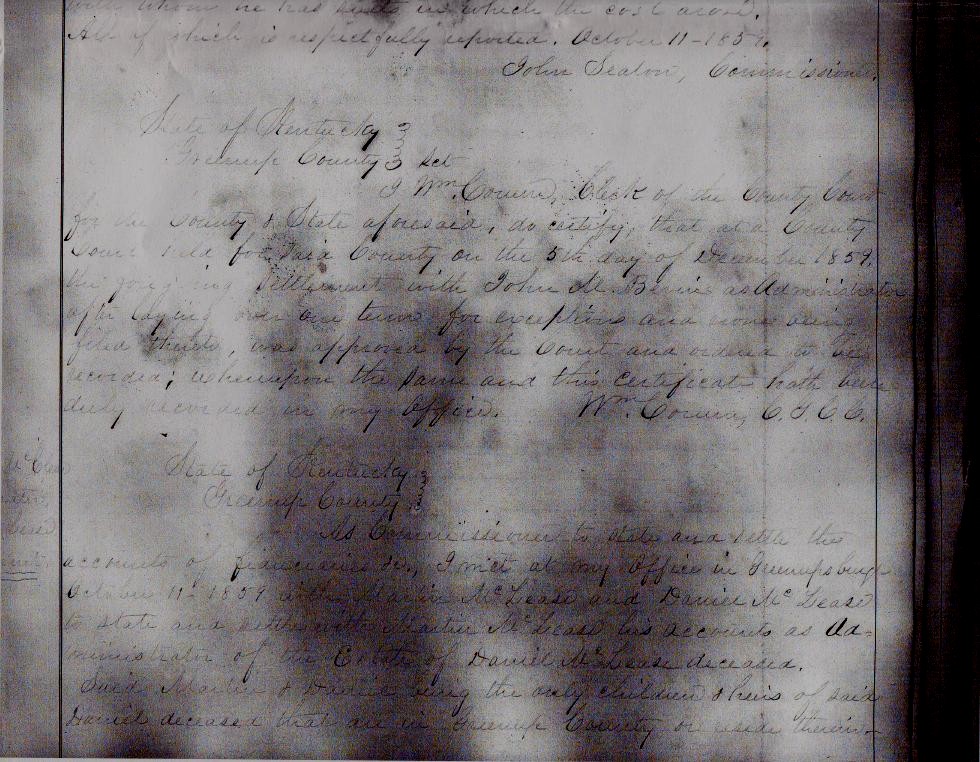 with whom he has in which the cost arose.
All of which is respectfully reported. October 11-1859.
John Seaton, Commissioner.
State of Kentucky
Greenup County Sct
I Wm. Corum, Clerk of the County Court
for the County & State aforesaid, do certify, that at a County
Court held for said County on the 5th day of December 1859.
the foregoing Settlement with John M. as Administrator
after laying over one term for exceptions and none being
filed thereto, was approved by the Court and ordered to be
recorded; whereupon the same and this certificate hath been
duly recorded in my office. Wm. Corum, C.G.C.C.
State of Kentucky
Greenup County
As Commissioner to state and settle the
accounts of fiduciaries &c., I met at my office in Greenupsburgh
October 11-1859 with Martin McLease and Daniel McLease
to state and settle with Martin McLease his accounts as Ad-
ministrator of the Estate of Daniel McLease deceased.
Said Martin & Daniel being the only children & heirs of said
Daniel deceased that are in Greenup County or reside therein-